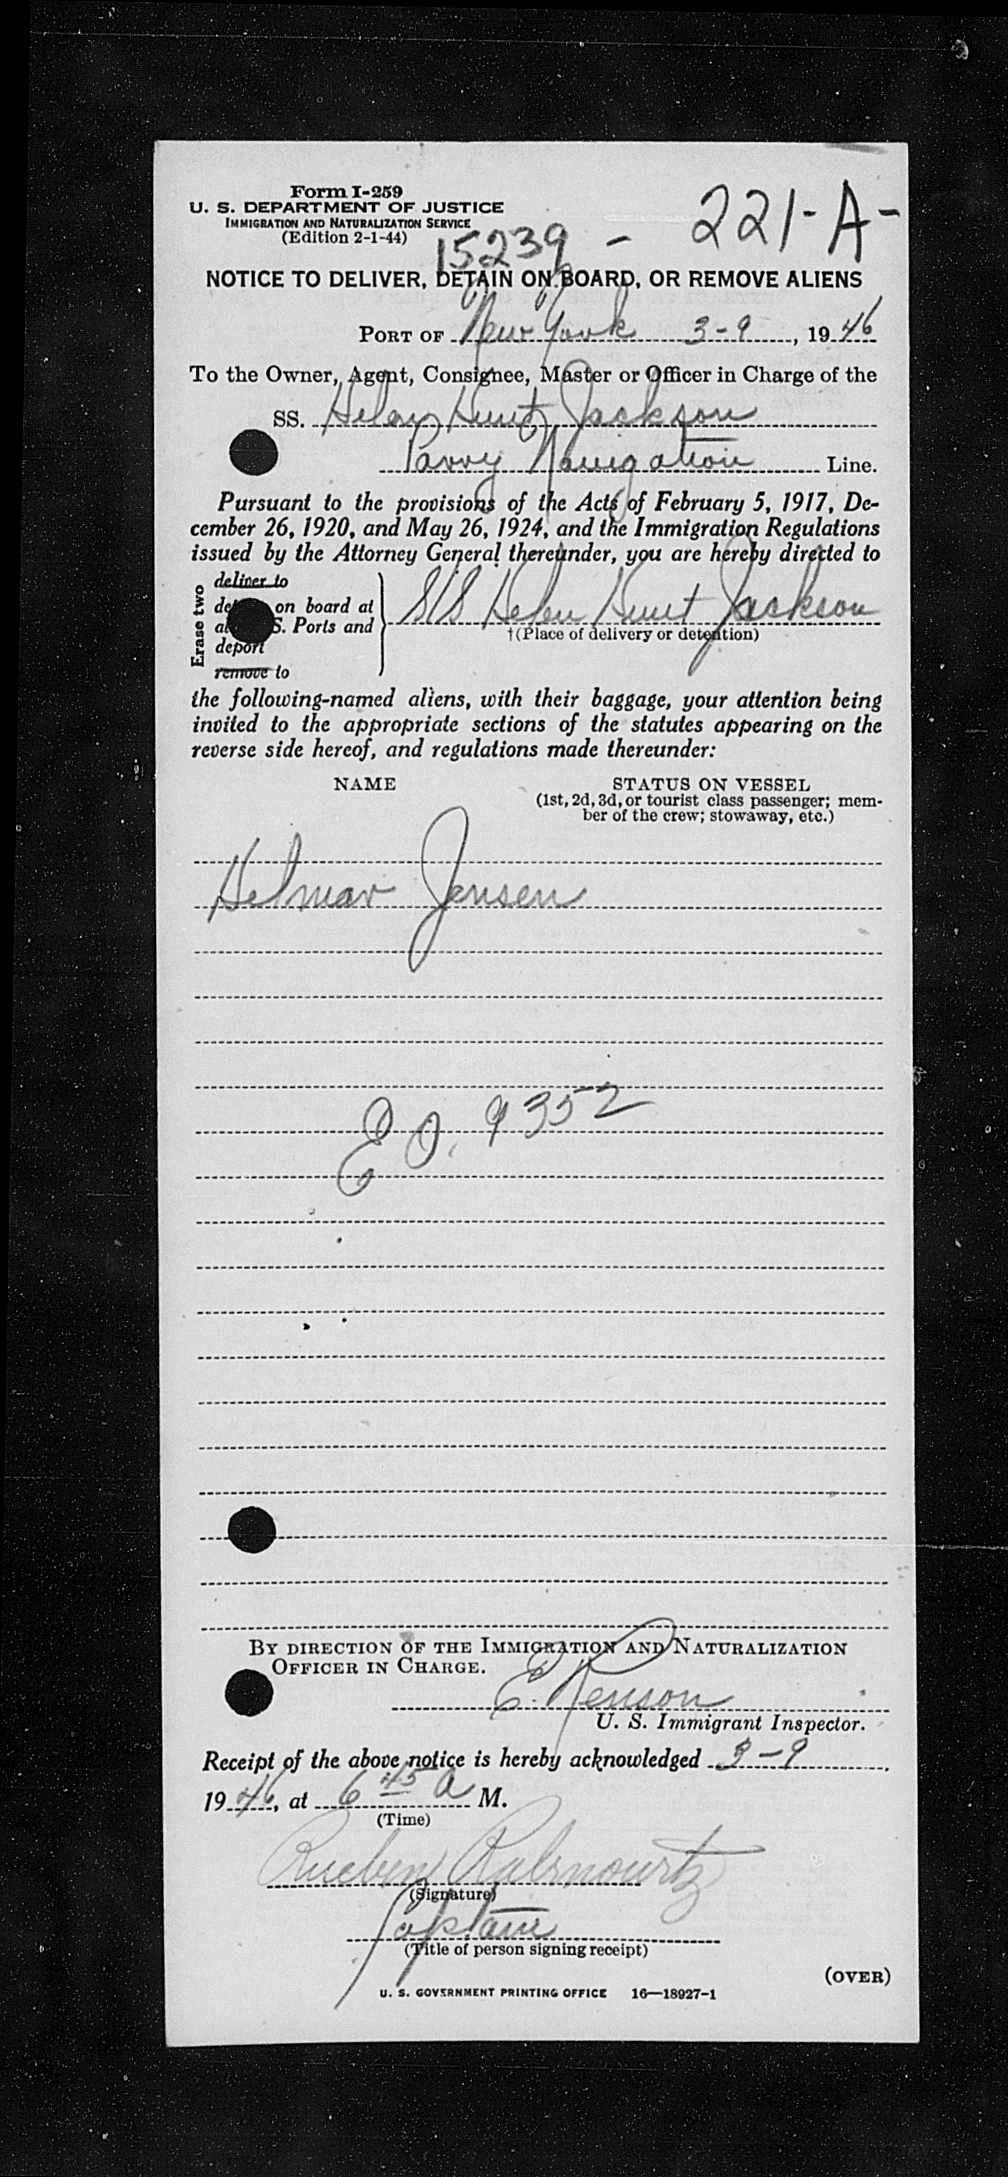 Form I-259
U. S. DEPARTMENT OF JUSTICE
IMMIGRATION AND NATURALIZATION SERVICE
(Edition 2-1-44)
15239 - 221-A-
NOTICE TO DELIVER, DETAIN ON BOARD, OR REMOVE ALIENS
PORT OF New York 3-9, 1946
To the Owner, Agent, Consignee, Master or Officer in Charge of the
SS. Helen Hunt Jackson
Parry Navigation Line.
Pursuant to the provisions of the Acts of February 5, 1917, De-
cember 26, 1920, and May 26, 1924, and the Immigration Regulations
issued by the Attorney General thereunder, you are hereby directed to
Erase two
deliver to
on board at
S. Ports and
deport
remove to
S/S Helen Hunt Jackson
†(Place of delivery or detention)
the following-named aliens, with their baggage, your attention being
invited to the appropriate sections of the statutes appearing on the
reverse side hereof, and regulations made thereunder:
NAME STATUS ON VESSEL
(1st, 2d, 3d, or tourist class passenger; mem-
ber of the crew; stowaway, etc.)
Helmar Jensen
E O. 9352
BY DIRECTION OF THE IMMIGRATION AND NATURALIZATION
OFFICER IN CHARGE.
E.
U. S. Immigrant Inspector.
Receipt of the above notice is hereby acknowledged 3-9.
1946, at 6 45 a M.
(Time)
Rueben
(Signature)
Captain
(Title of person signing receipt)
(OVER)
U. S. GOVERNMENT PRINTING OFFICE 16—18927-1